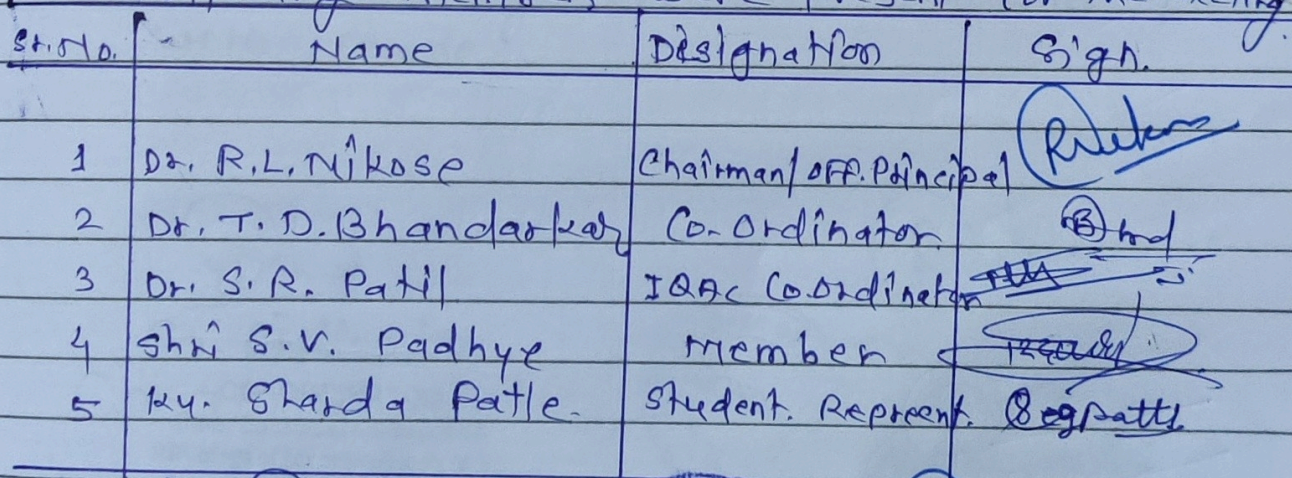 Sr.No. Name Designation Sign.
1 Dr. R.L. Nikose Chairman/ OFF. Principal
2 Dr. T. D. Bhandarkar Co-Ordinator
3 Dr. S. R. Patil IQAC Co.Ordinator
4 Shri S.V. Padhye Member
5 Ku. Sharda Patle. Student. Represent.